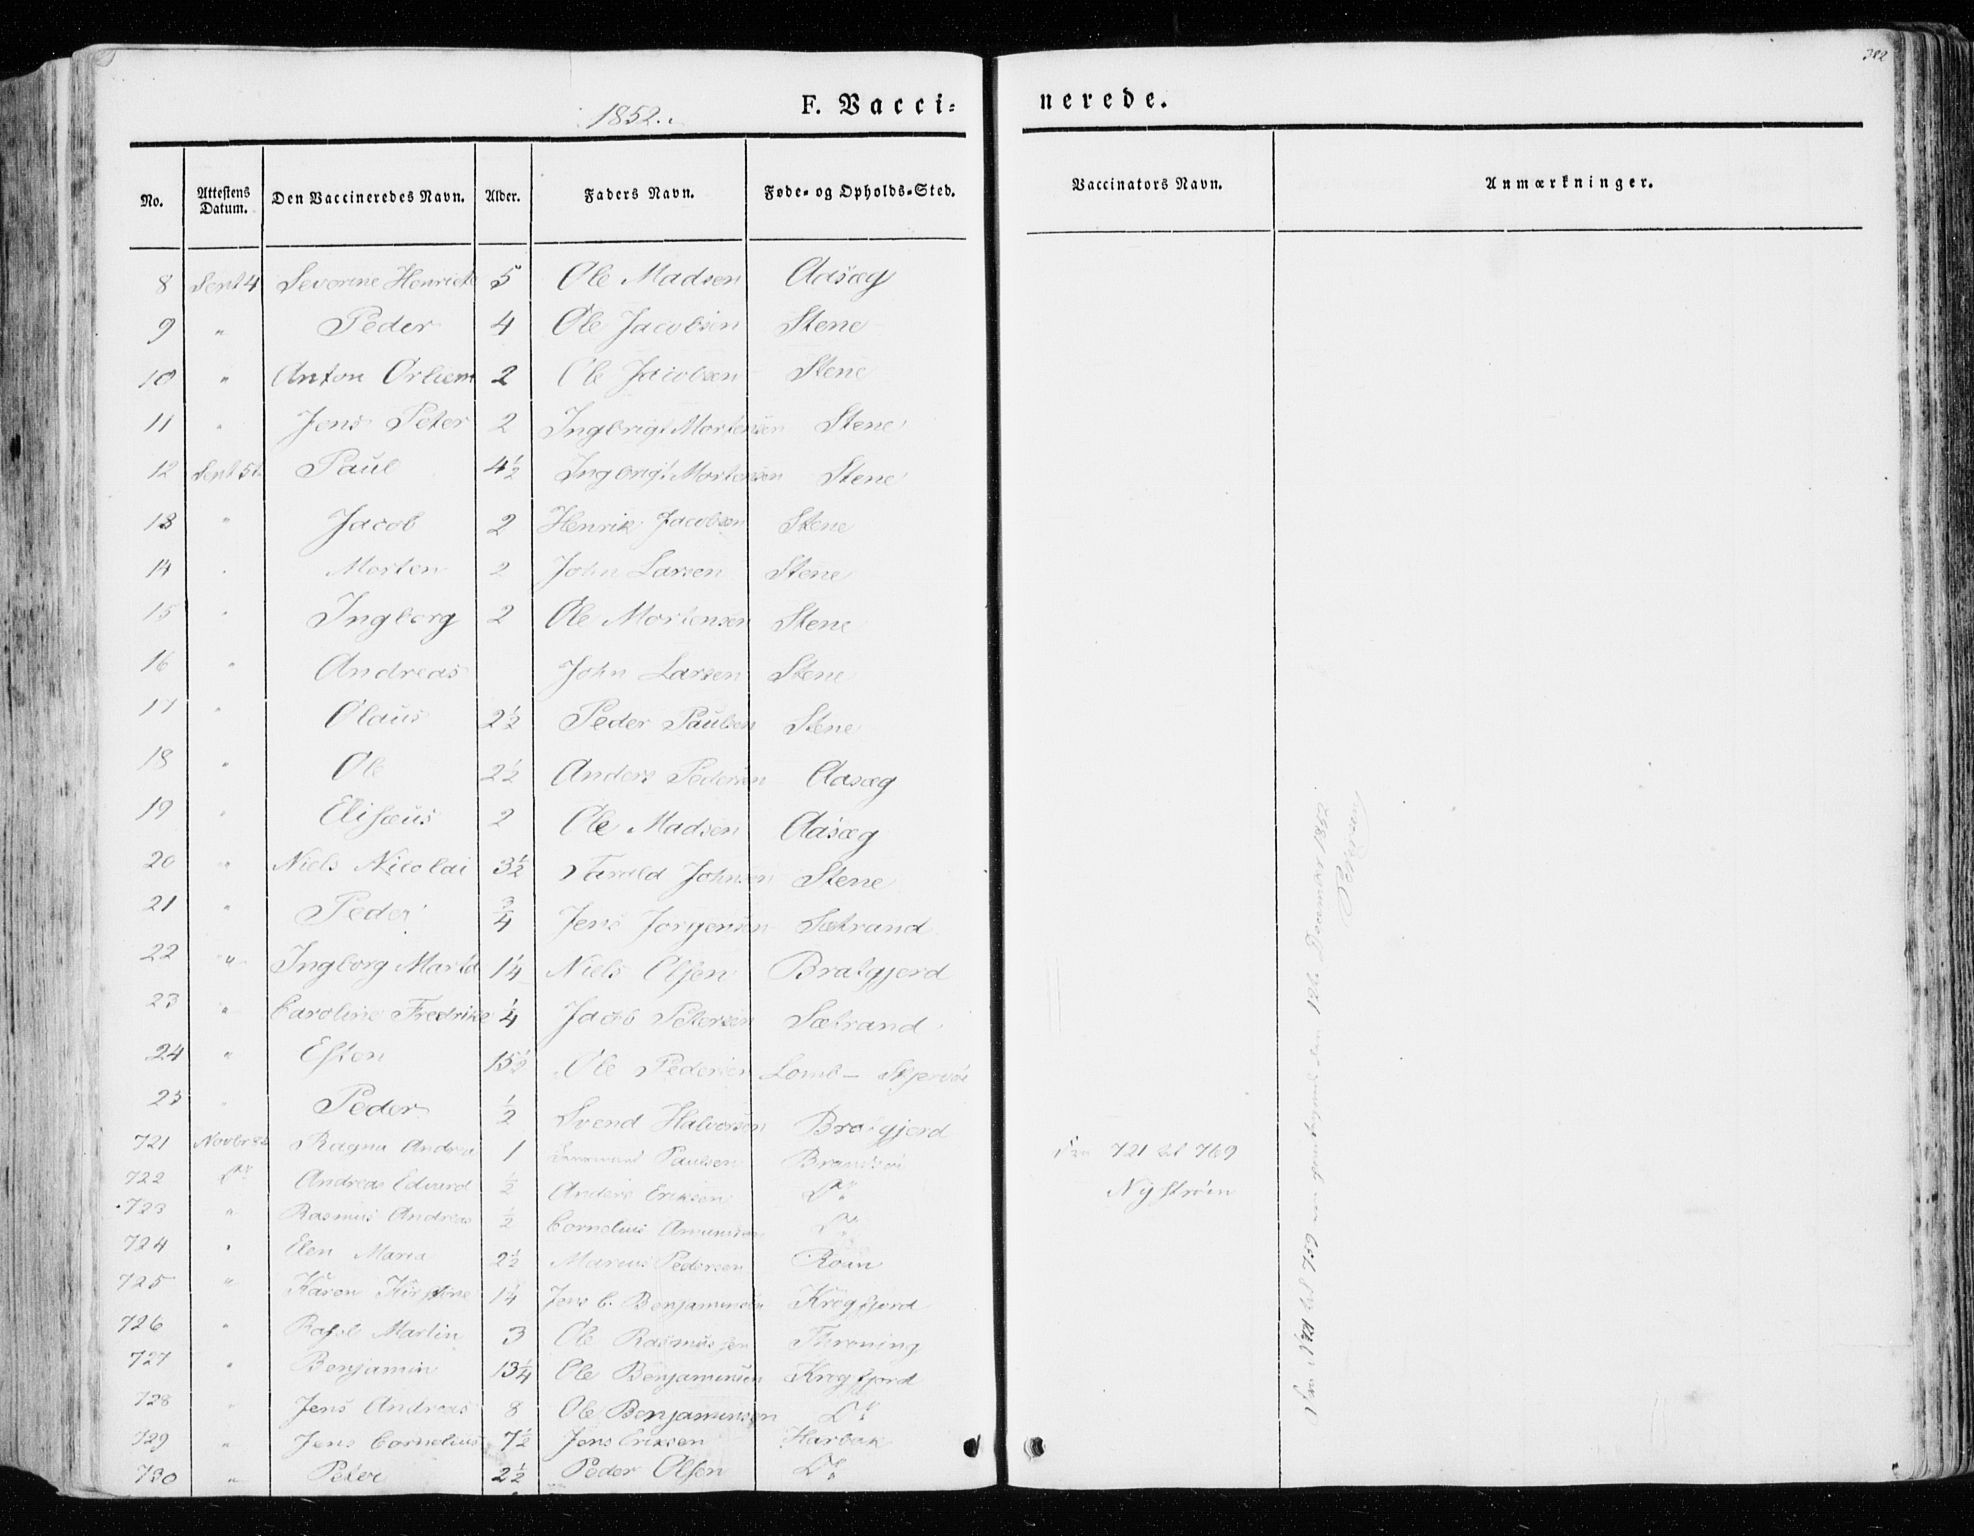 382
1852.
F. Vacci-
nerede.
No. Attestens Datum. Den Vaccineredes Navn. Alder. Faders Navn. Føde- og Opholds-Sted. Vaccinators Navn. Anmærkninger.
8 Sept 4 Severine Henriette 5 Ole Madsen Aasæg
9 " Peder 4 Ole Jacobsen Stene
10 " Anton 2 Ole Jacobsen Stene
11 " Jens Peter 2 Ingbrigt Mortensen Stene
12 Sept 5 Paul 4½ Ingbrigt Mortensen Stene
13 " Jacob 2 Henrik Jacobsen Stene
14 " Morten 2 John Larsen Stene
15 " Ingborg 2 Ole Mortensen Stene
16 " Andreas John Larsen Stene
17 " Olaus 2½ Peder Paulsen Stene
18 " Ole 2½ Anders Pedersen Aasæg
19 " Elisæus 2 Ole Madsen Aasæg
20 " Niels Nicolai 3½ Johnsen Stene
21 " Peder ¾ Jens Jorgensen Sætrand
22 " Ingborg Marta 1¼ Niels Olsen Bratgjerd
23 " Caroline Fredrike ¼ Jacob Petersen Sætrand
24 " Esten 15½ Ole Pedersen
25 " Peder ½ Svend Halvorsen Bratgjerd
721 Novbr Ragna Andrea 1 Paulsen
722 Do Andreas Edvard ½ Anders Eriksen Do
723 " Rasmus Andreas ½ Cornelius Do
724 " Elen Maria 2½ Marius Pedersen Roan
725 " Karen Kirstine 1¼ Jens C. Benjaminsen Kregfjord
726 " Martin 3 Ole Rasmussen
727 " Benjamin 13¼ Ole Benjaminsen Kregfjord
728 " Jens Andreas 8 Ole Benjaminsen Do
729 " Jens Cornelius 7½ Jens Eriksen Harbak
730 " Peter 2½ Peder Olsen Do
721 til 769
Nystrøm
til 759 den 12te December 1852
Petersen